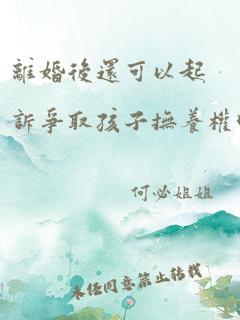 離婚後還可以起
訴爭取孩子撫養權
何必姐姐
未經同意禁止轉載